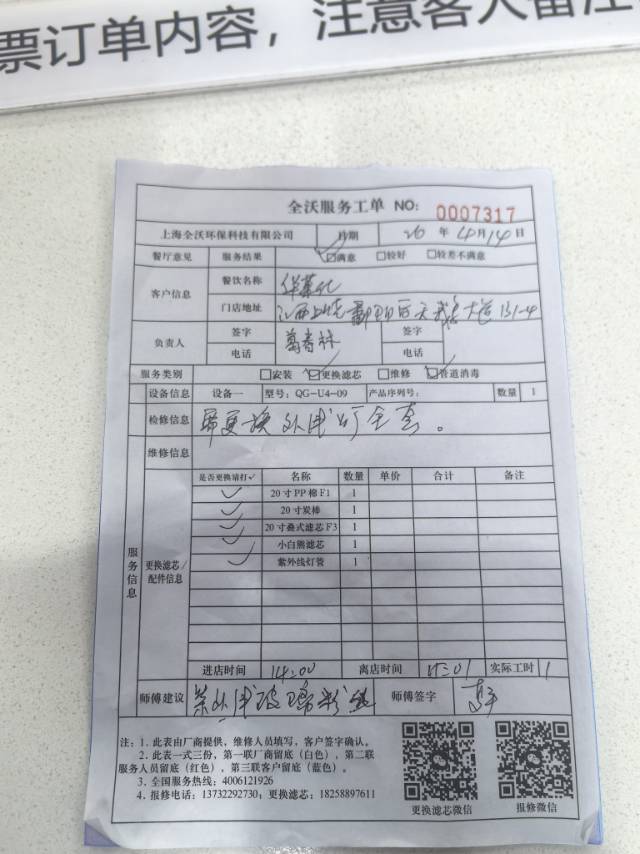 票订单内容，注意客人备注
全沃服务工单 NO: 0007317
上海全沃环保科技有限公司 日期 26 年 4 月 14 日
餐厅意见 服务结果 ☑满意 □较好 □较差不满意
客户信息 餐饮名称 华莱士
门店地址 江西上饶 大道131-4
负责人 签字 签字
电话 电话
服务类别 □安装 ☑更换滤芯 □维修 ☑管道消毒
设备信息 设备一 型号：QG-U4-09 产品序列号： 数量 1
检修信息 需更换 灯全套。
维修信息
服务信息 更换滤芯/配件信息
是否更换请打✓ 名称 数量 单价 合计 备注
✓ 20寸PP棉F1 1
✓ 20寸炭棒 1
✓ 20寸叠式滤芯F3 1
✓ 小白熊滤芯 1
✓ 紫外线灯管 1
进店时间 14:00 离店时间 15:01 实际工时 1
师傅建议 师傅签字
注：1. 此表由厂商提供，维修人员填写，客户签字确认。
2. 此表一式三份，第一联厂商留底（白色），第二联
服务人员留底（红色），第三联客户留底（蓝色）。
3. 全国服务热线：4006121926
4. 报修电话：13732292730；更换滤芯：18258897611
更换滤芯微信 报修微信